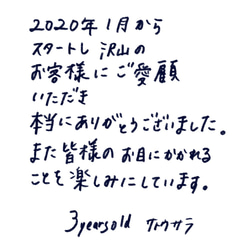 2020年1月から
スタートし 沢山の
お客様に ご愛顧
いただき
本当にありがとうございました。
また皆様の お目にかかれる
ことを 楽しみにしています。
3yearsold サトウサラ